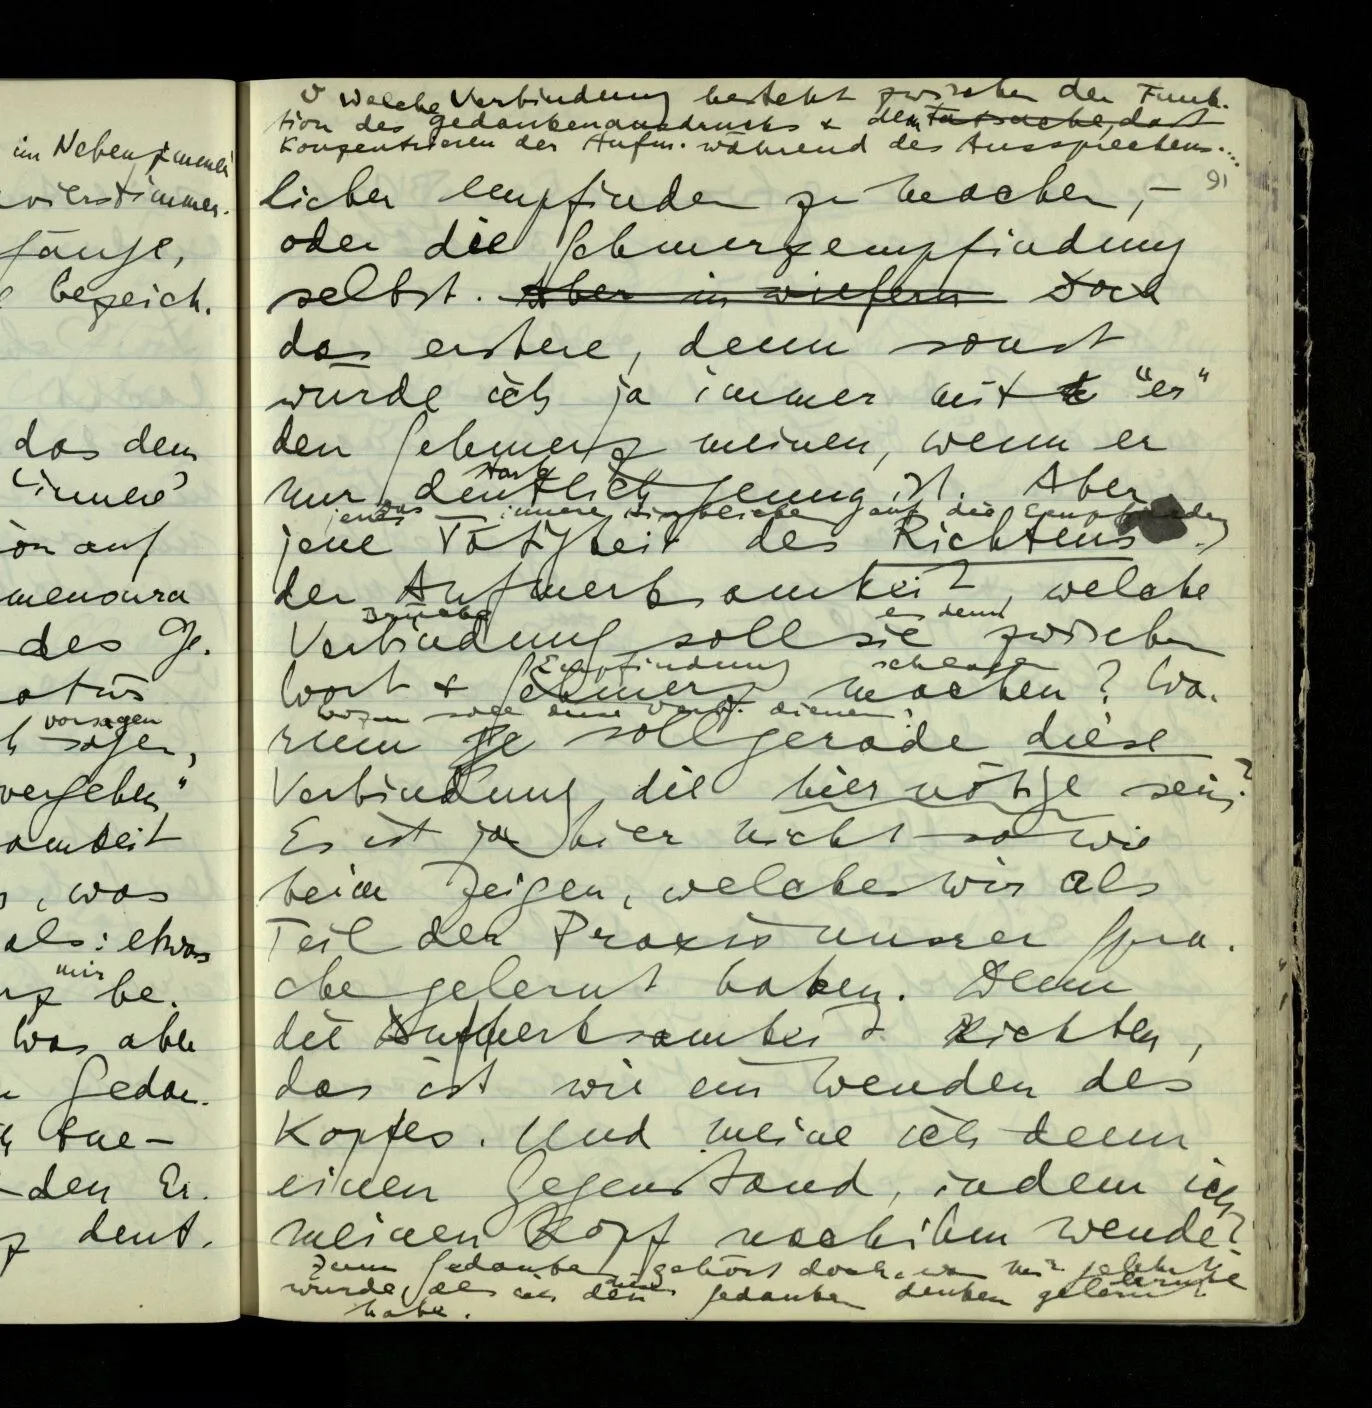 im Nebenzimmer
vierstimmer.
gänge,
bezeich.
das dem
"innere"
ion auf
des Ge.
vorsagen
sagen,
vergeben"
amkeit
, was
als: etwas
mir
be.
Was aber
Gedan.
tue –
den Er.
deut.
Welche Verbindung besteht zwischen der Funk.
tion des Gedankenausdrucks & dem Tatsache, daß
Konzentrieren der Aufm. während des Aussprechens....
91
licher empfinden zu machen, –
oder die Schmerzempfindung
selbst. Aber in wiefern Doch
das erstere, denn sonst
würde ich ja immer mit "er"
den Schmerz meinen, wenn er
stark
nur deutlich genug ist. Aber
jenes innere hinblicken auf die Empfindung
jene Tätigkeit des Richtens
der Aufmerksamkeit, welche
Brücke es denn
Verbindung soll sie zwischen
Empfindung schlagen
Wort & Schmerz machen? Wa.
wozu soll diese Verb. dienen?
rum soll gerade diese
Verbindung die hier nötige sein?
Es ist ja hier nicht so wie
beim Zeigen, welches wir als
Teil der Praxis unsrer Spra.
che gelernt haben. Denn
die Aufmerksamkeit richten,
das ist wie ein Wenden des
Kopfes. Und meine ich denn
einen Gegenstand, indem ich
meinen Kopf nach ihm wende?
Zum Gedanken gehört doch, was mir gelehrt
wurde, als ich den Gedanken denken gelernt
habe.